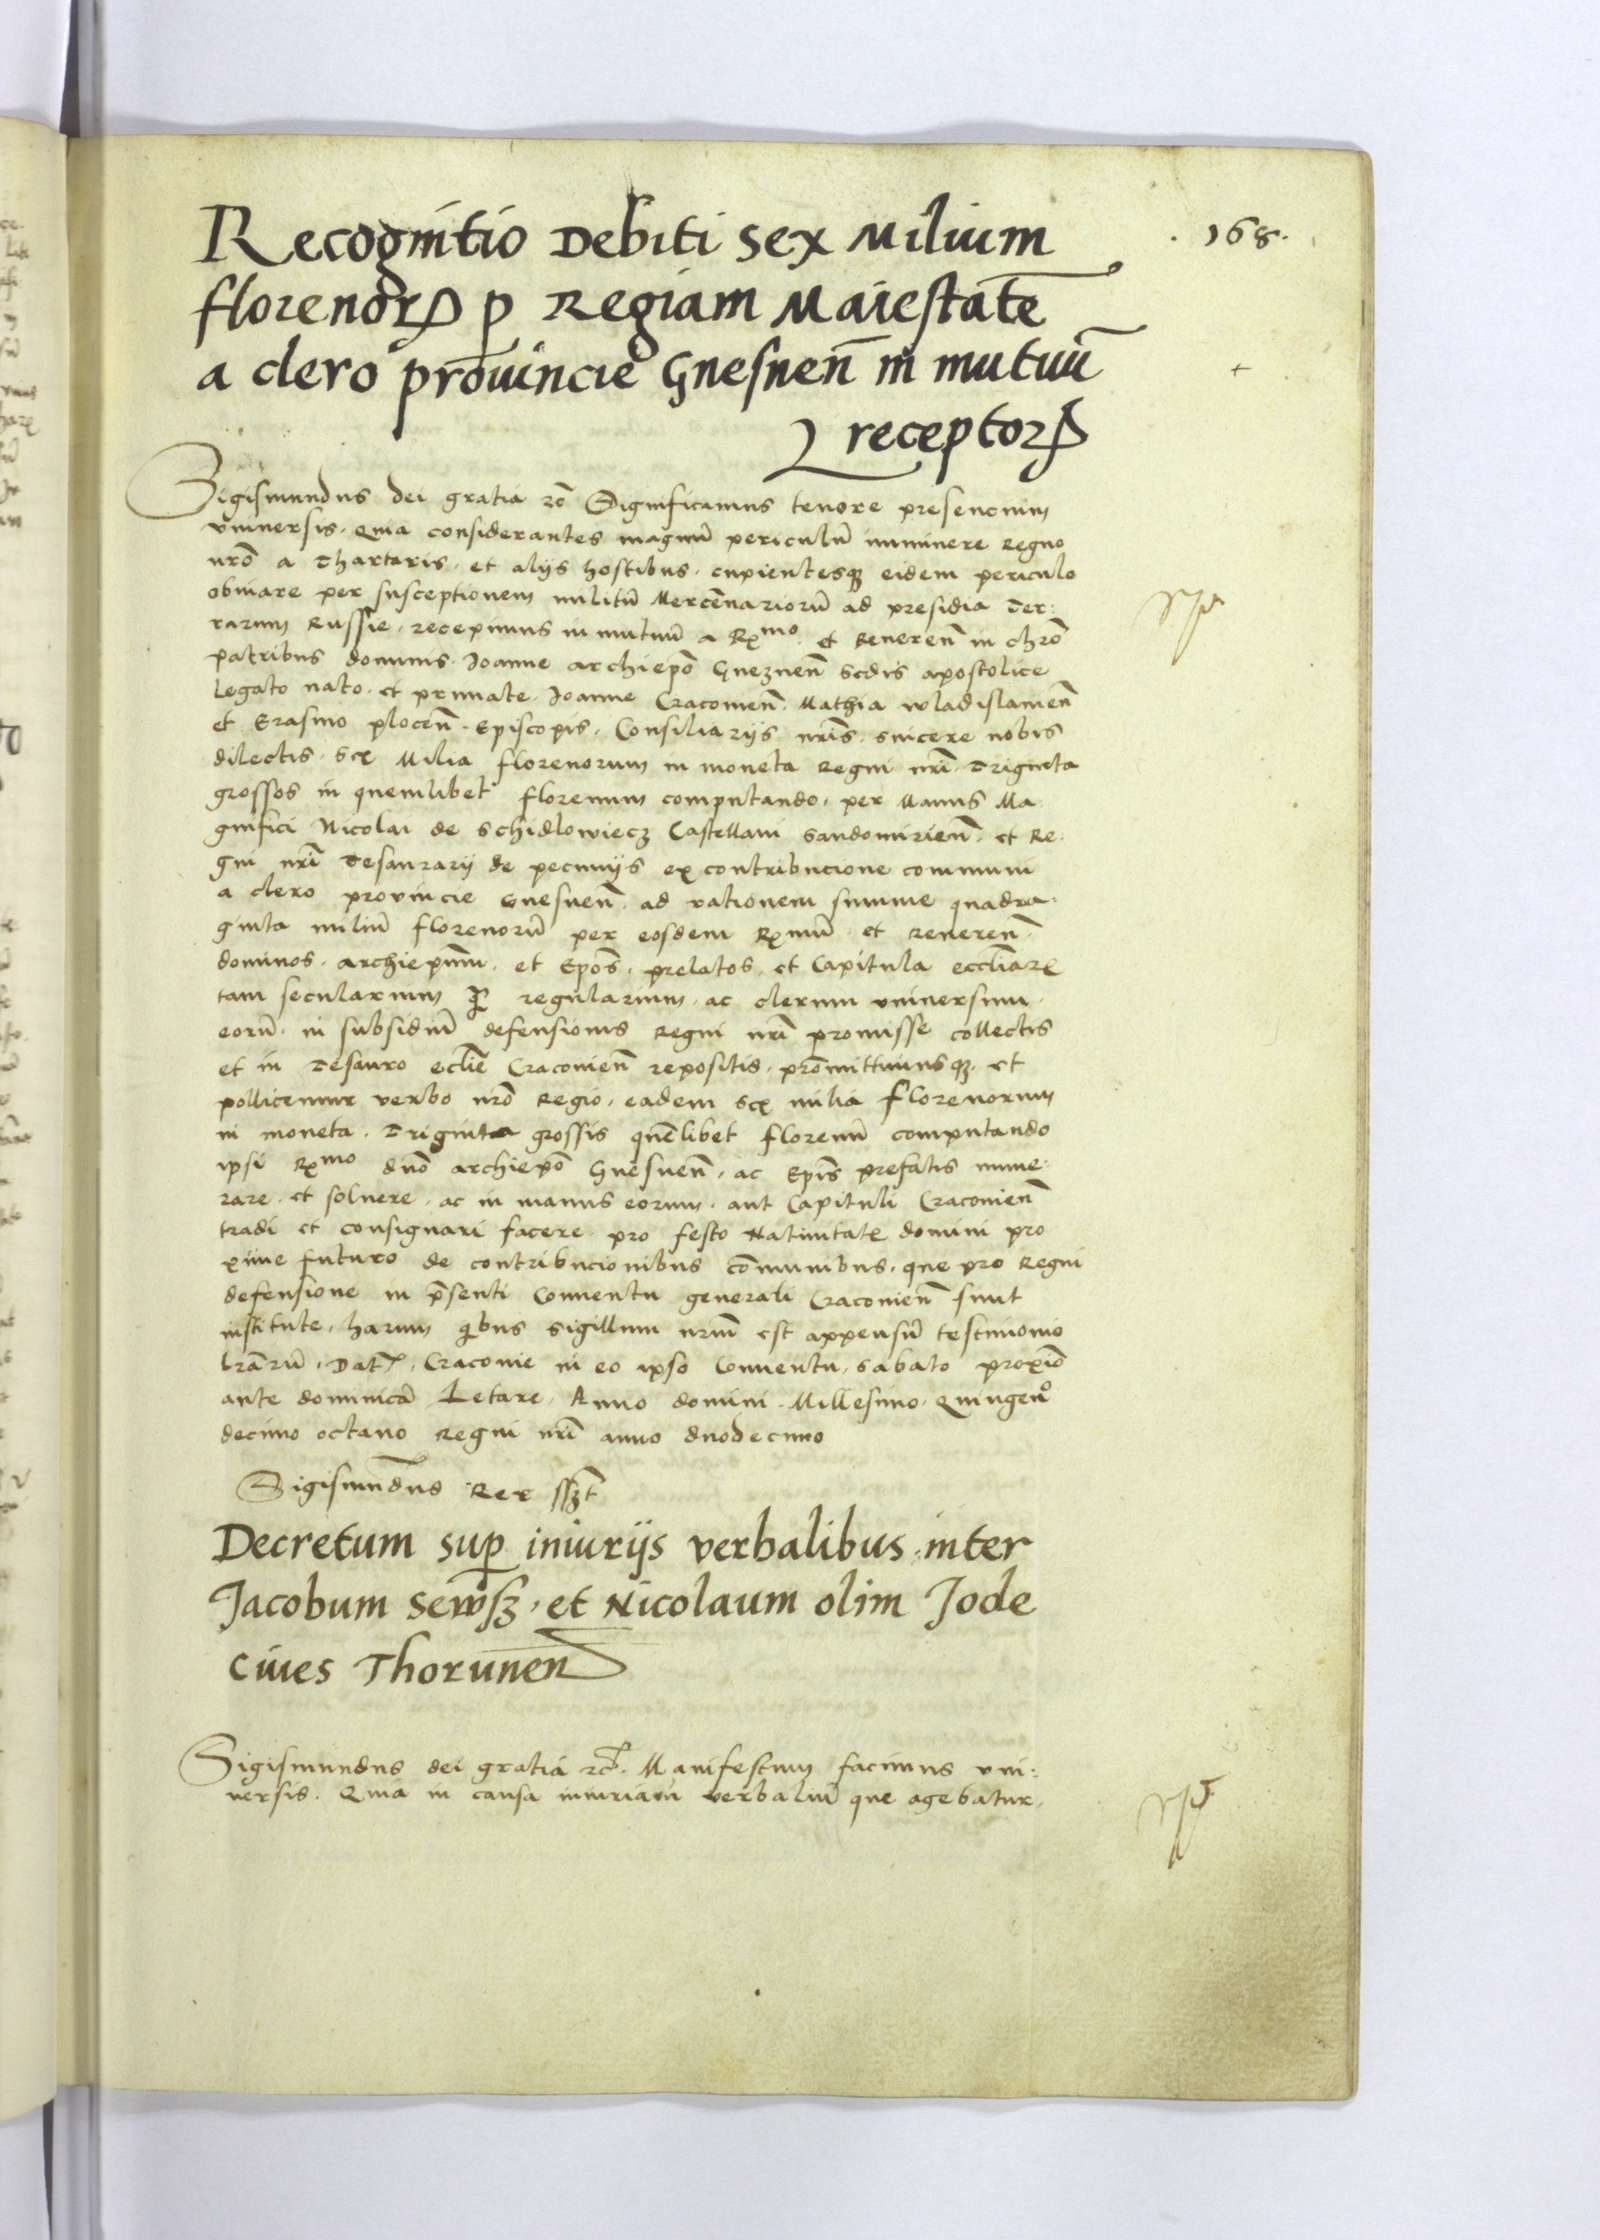 .168.
Recognitio Debiti sex Milium
florenorꝝ ꝑ Regiam Maiestatē
a clero prouincie Gnesnen̄ in mutuū
receptorꝝ
Sigismundus dei gratia ⁊c̄ Significamus tenore presencium
vniuersis. Quia considerantes magnū periculū imminere Regno
nrō a Thartaris. et alijs hostibus. cupientesqꝫ eidem periculo
obuiare per susceptionem militū Mercēnariorū ad presidia Ter:
rarum Russie. recepimus in mutuū a Rx^mo. et Reueren̄ in chrō
patribus dominis. Joanne archiepō Gneznen̄ sedis apostolice
Legato nato. et primate. Joanne Cracouien̄. Mathia wladislauien̄
et Erasmo plocen̄. Episcopis. Consiliarijs nr̄is. sincere nobis
dilectis. sex Milia florenorum in moneta Regni nr̄i Triginta
grossos in quemlibet florenum computando. per Manus Ma
gnifici Nicolai de Schidlowiecz Castellani Sandomirien̄. et Re:
gni nr̄i Tesaurarij de pecunijs ex contribucione communi
a clero prouincie Gnesnen̄. ad rationem summe quadra.
ginta miliū florenorū per eosdem Rx̄mū et reueren̄.
dominos. archiep̄um. et Ep̄os. prelatos. et Capitula eccliarꝝ
tam secularium ꝙ̄ regularium. ac clerum vniuersum.
eorū. in subsidiū defensionis Regni nr̄i promisse collectis
et in Tesauro eccliē Cracouien̄ repositis. prōmittimusqꝫ. et
pollicemur verbo nrō Regio. eadem sex milia florenorum
in moneta. Triginta grossis quēlibet florenū computando
ipsi Rx^mo dnō archiepō Gnesnen̄. ac Epīs prefatis nume:
rare. et soluere. ac in manus eorum. aut Capituli Cracouien̄
tradi et consignari facere pro festo Natiuitatꝭ domini pro
xime futuro de contribucionibus cōmunibus. que pro Regni
defensione in p̄senti Conuentu generali Cracouien̄ sunt
institute. harum ꝗbus sigillum nr̄um est appensū testimonio
lrārū. Datꝭ. Cracouie in eo ipso Conuentu. sabato proxīo
ante dominicā Letare. Anno domini. Millesimo. Quingen^o
decimo octauo Regni nr̄i anno duodecimo
Sigismūdus Rex ssꝫt
Decretum suꝑ iniurijs verbalibus. inter
Jacobum Sewsꝫ. et Nicolaum olim Jode
Ciues Thorunen̄
Sigismundus dei gratia ⁊c̄. Manifestum facimus vni:
uersis. Quia in causa iniuriarū verbaliū que agebatur.